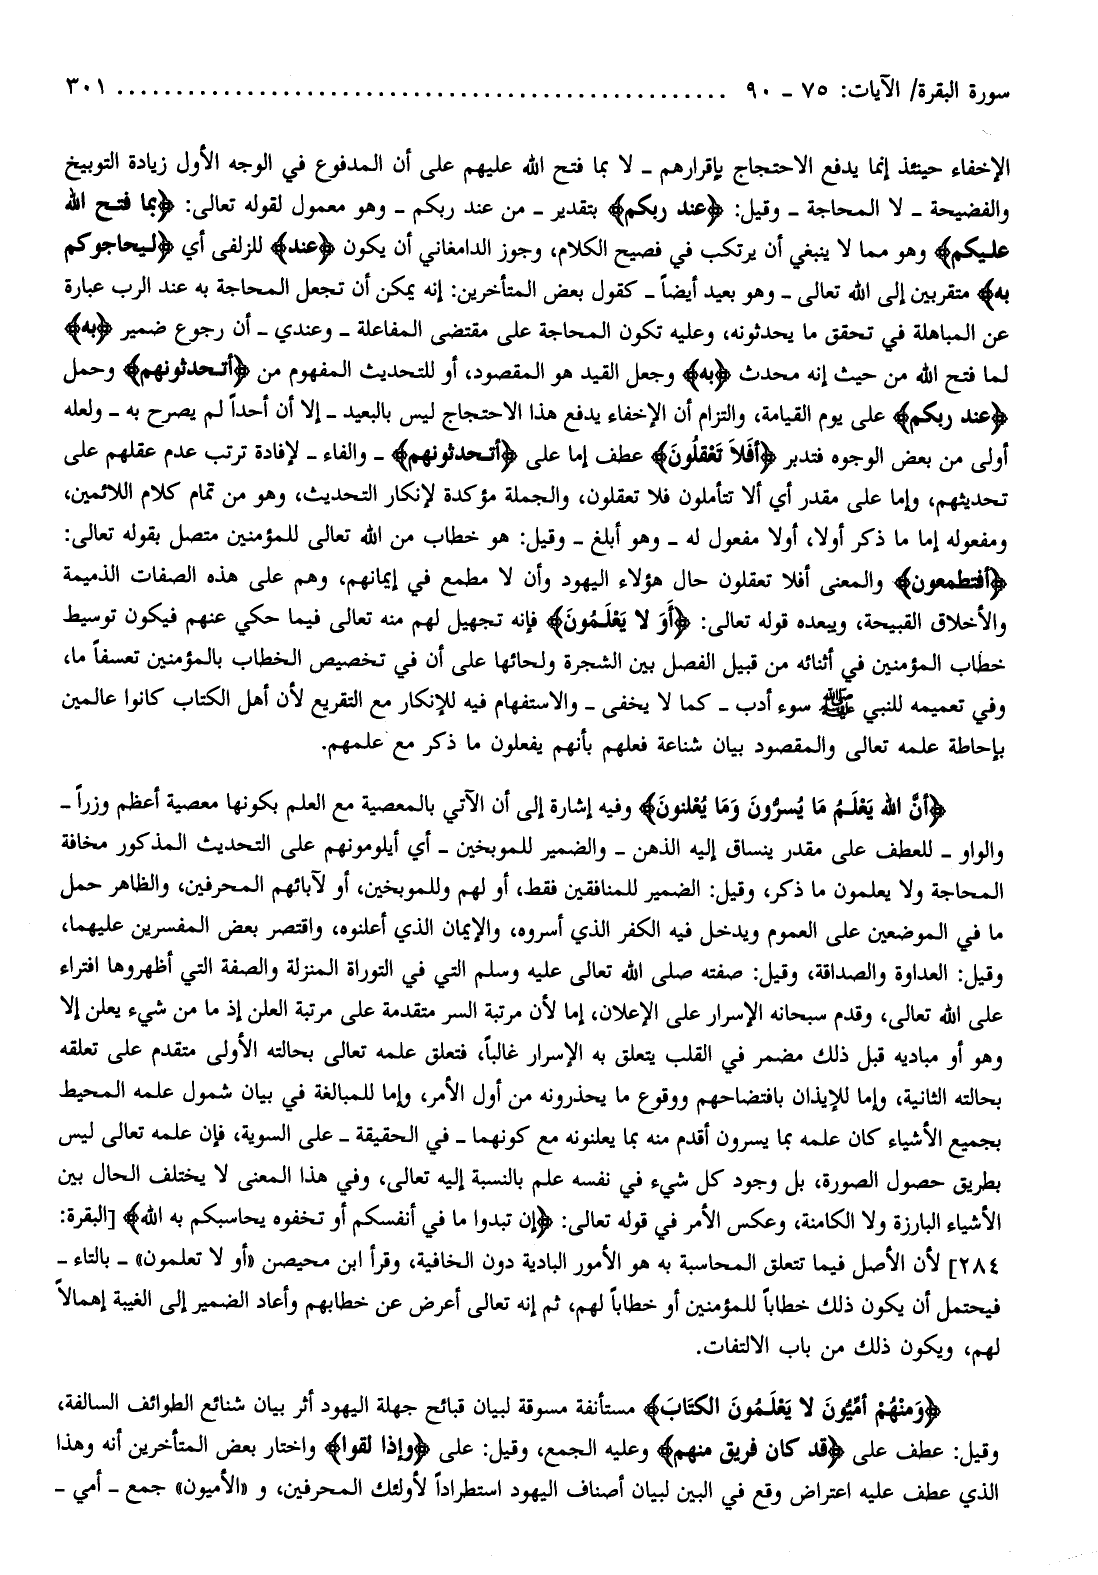 سورة البقرة/ الآيات: ٧٥ ـ ٩٠ ................................................... ٣٠١
الإخفاء حينئذ إنما يدفع الاحتجاج بإقرارهم ـ لا بما فتح الله عليهم على أن المدفوع في الوجه الأول زيادة التوبيخ
والفضيحة ـ لا المحاجة ـ وقيل: ﴿عند ربكم﴾ بتقدير ـ من عند ربكم ـ وهو معمول لقوله تعالى: ﴿بما فتح الله
عليكم﴾ وهو مما لا ينبغي أن يرتكب في فصيح الكلام، وجوز الدامغاني أن يكون ﴿عند﴾ للزلفى أي ﴿ليحاجوكم
به﴾ متقربين إلى الله تعالى ـ وهو بعيد أيضاً ـ كقول بعض المتأخرين: إنه يمكن أن تجعل المحاجة به عند الرب عبارة
عن المباهلة في تحقق ما يحدثونه، وعليه تكون المحاجة على مقتضى المفاعلة ـ وعندي ـ أن رجوع ضمير ﴿به﴾
لما فتح الله من حيث إنه محدث ﴿به﴾ وجعل القيد هو المقصود، أو للتحديث المفهوم من ﴿أتحدثونهم﴾ وحمل
﴿عند ربكم﴾ على يوم القيامة، والتزام أن الإخفاء يدفع هذا الاحتجاج ليس بالبعيد ـ إلا أن أحداً لم يصرح به ـ ولعله
أولى من بعض الوجوه فتدبر ﴿أَفَلاَ تَعْقِلُونَ﴾ عطف إما على ﴿أتحدثونهم﴾ ـ والفاء ـ لإفادة ترتب عدم عقلهم على
تحديثهم، وإما على مقدر أي ألا تتأملون فلا تعقلون، والجملة مؤكدة لإنكار التحديث، وهو من تمام كلام اللائمين،
ومفعوله إما ما ذكر أولا، أولا مفعول له ـ وهو أبلغ ـ وقيل: هو خطاب من الله تعالى للمؤمنين متصل بقوله تعالى:
﴿أفتطمعون﴾ والمعنى أفلا تعقلون حال هؤلاء اليهود وأن لا مطمع في إيمانهم، وهم على هذه الصفات الذميمة
والأخلاق القبيحة، ويبعده قوله تعالى: ﴿أَوَ لا يَعْلَمُونَ﴾ فإنه تجهيل لهم منه تعالى فيما حكي عنهم فيكون توسيط
خطاب المؤمنين في أثنائه من قبيل الفصل بين الشجرة ولحائها على أن في تخصيص الخطاب بالمؤمنين تعسفاً ما،
وفي تعميمه للنبي ﷺ سوء أدب ـ كما لا يخفى ـ والاستفهام فيه للإنكار مع التقريع لأن أهل الكتاب كانوا عالمين
بإحاطة علمه تعالى والمقصود بيان شناعة فعلهم بأنهم يفعلون ما ذكر مع علمهم.
﴿أنَّ الله يَعْلَمُ مَا يُسرُّونَ وَمَا يُعْلنونَ﴾ وفيه إشارة إلى أن الآتي بالمعصية مع العلم بكونها معصية أعظم وزراً ـ
والواو ـ للعطف على مقدر ينساق إليه الذهن ـ والضمير للموبخين ـ أي أيلومونهم على التحديث المذكور مخافة
المحاجة ولا يعلمون ما ذكر، وقيل: الضمير للمنافقين فقط، أو لهم وللموبخين، أو لآبائهم المحرفين، والظاهر حمل
ما في الموضعين على العموم ويدخل فيه الكفر الذي أسروه، والإيمان الذي أعلنوه، واقتصر بعض المفسرين عليهما،
وقيل: العداوة والصداقة، وقيل: صفته صلى الله تعالى عليه وسلم التي في التوراة المنزلة والصفة التي أظهروها افتراء
على الله تعالى، وقدم سبحانه الإسرار على الإعلان، إما لأن مرتبة السر متقدمة على مرتبة العلن إذ ما من شيء يعلن إلا
وهو أو مباديه قبل ذلك مضمر في القلب يتعلق به الإسرار غالباً، فتعلق علمه تعالى بحالته الأولى متقدم على تعلقه
بحالته الثانية، وإما للإيذان بافتضاحهم ووقوع ما يحذرونه من أول الأمر، وإما للمبالغة في بيان شمول علمه المحيط
بجميع الأشياء كان علمه بما يسرون أقدم منه بما يعلنونه مع كونهما ـ في الحقيقة ـ على السوية، فإن علمه تعالى ليس
بطريق حصول الصورة، بل وجود كل شيء في نفسه علم بالنسبة إليه تعالى، وفي هذا المعنى لا يختلف الحال بين
الأشياء البارزة ولا الكامنة، وعكس الأمر في قوله تعالى: ﴿إن تبدوا ما في أنفسكم أو تخفوه يحاسبكم به الله﴾ [البقرة:
٢٨٤] لأن الأصل فيما تتعلق المحاسبة به هو الأمور البادية دون الخافية، وقرأ ابن محيصن «أو لا تعلمون» ـ بالتاء ـ
فيحتمل أن يكون ذلك خطاباً للمؤمنين أو خطاباً لهم، ثم إنه تعالى أعرض عن خطابهم وأعاد الضمير إلى الغيبة إهمالاً
لهم، ويكون ذلك من باب الالتفات.
﴿وَمنْهُمْ أمِّيُّونَ لا يَعْلَمُونَ الكتَابَ﴾ مستأنفة مسوقة لبيان قبائح جهلة اليهود أثر بيان شنائع الطوائف السالفة،
وقيل: عطف على ﴿قد كان فريق منهم﴾ وعليه الجمع، وقيل: على ﴿وإذا لقوا﴾ واختار بعض المتأخرين أنه وهذا
الذي عطف عليه اعتراض وقع في البين لبيان أصناف اليهود استطراداً لأولئك المحرفين، و «الأميون» جمع ـ أمي ـ